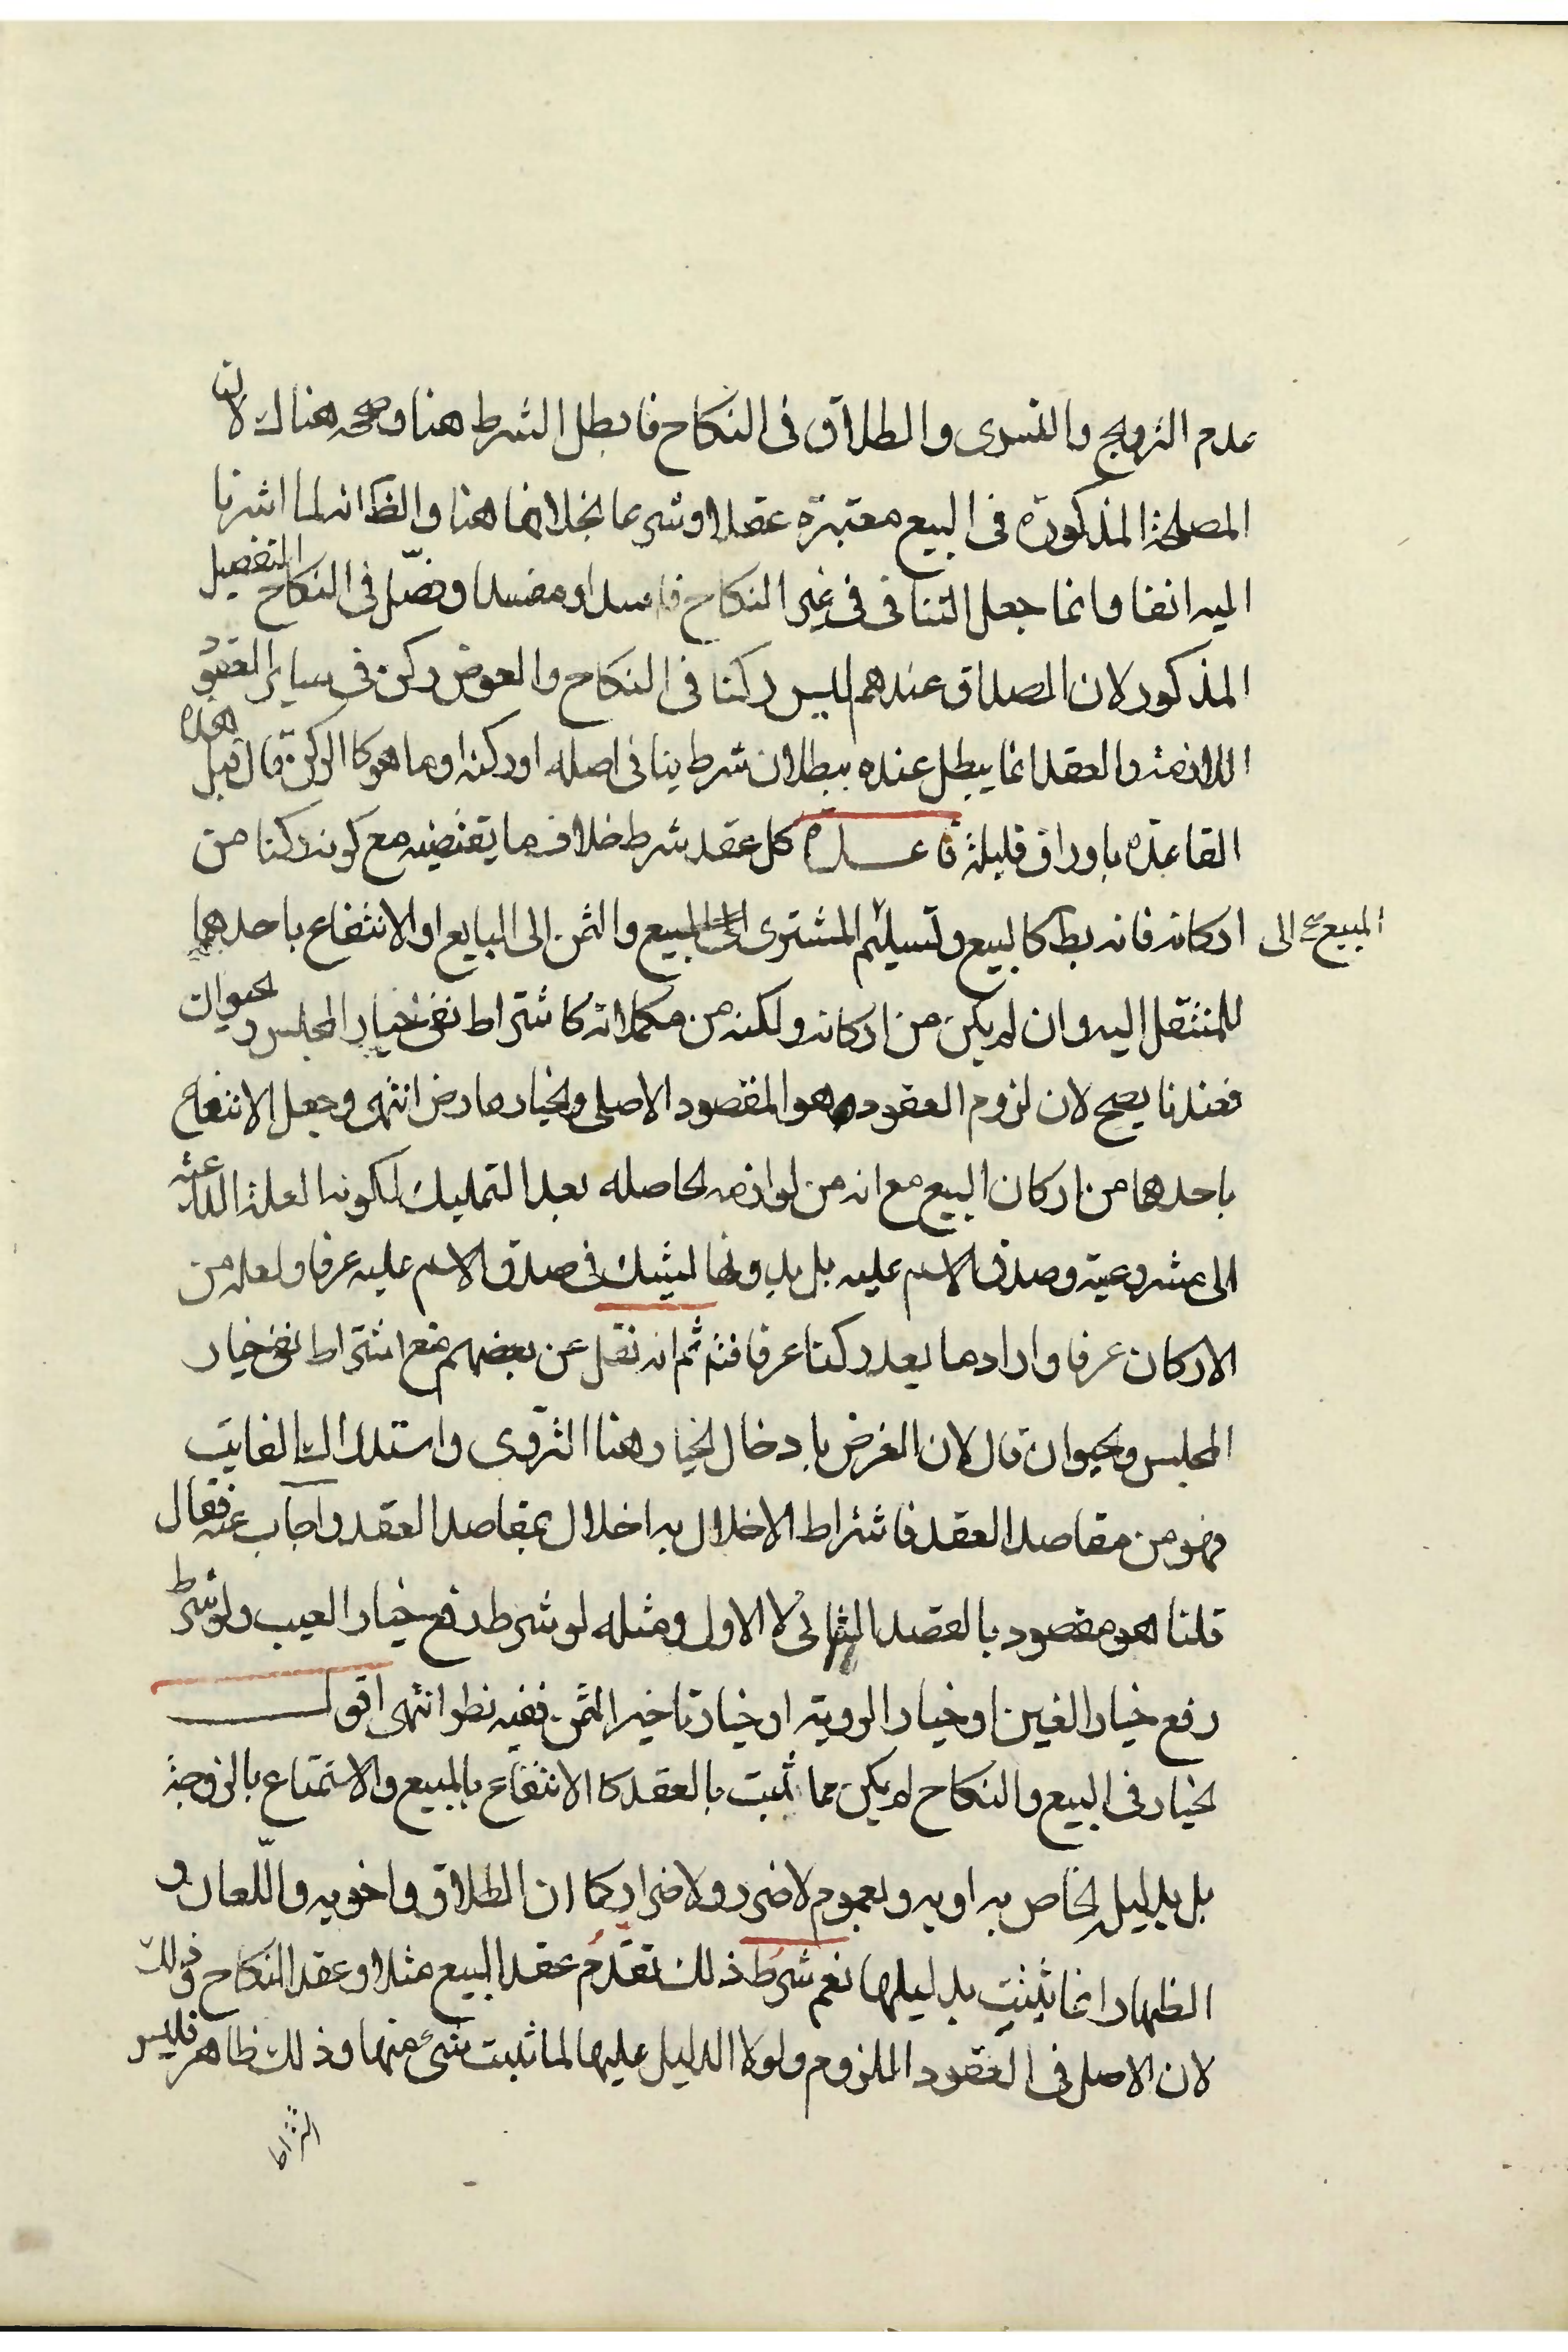 عدم التزويج والتسرى والطلاق فى النكاح فابطل الشرط هنا وصححه هناك لان
المصلحة المذكورة فى البيع معتبرة عقلا او شرعا بخلافها هنا والظ انه لما اشرنا
اليه انفا وانما جعل التنافى فى غير النكاح فاسدا ومفسدا وفصّل فى النكاح التفصيل
المذكور لان الصداق عندهم ليس ركنا فى النكاح والعوض ركن فى ساير العقود
اللازمة والعقد انما يبطل عنده ببطلان شرط ينافى اصله او ركنه او ما هو كالركن قال قبل هذه
القاعدة باوراق قليلة قاعــدة كل عقد شرط خلاف ما يقتضيه مع كونه ركنا من
اركانه فانه يبط كالبيع وتسليم المشترى الى المبيع والثمن الى البايع او الانتفاع باحدهما
المبيع صح الى
للمنتقل اليه وان لم يكن من اركانه ولكنه من مكملاته كاشتراط نفى خيار المجلس والحيوان
فعندنا يصح لان لزوم العقود هو المقصود الاصلى والخيار عارض انتهى وجعل الانتفاع
باحدهما من اركان البيع مع انه من لوازمه الحاصله بعد التمليك لكونه العلة الداعية
الى مشروعيته وصدق الاسم عليه بل بدونها ليشك فى صدق الاسم عليه عرفا ولعله من
الاركان عرفا واراد ما يعد ركنا عرفا فتم ثم انه نقل عن بعضهم منع اشتراط نفى خيار
المجلس والحيوان قال لان الغرض بادخال الخيار هنا التروى واستدراك الفايت
فهو من مقاصد العقد فاشتراط الاخلال به اخلال بمقاصد العقد واجاب عنه فقال
قلنا هو مقصود بالقصد الثانى لا الاول ومثله لو شرط رفع خيار العيب ولو شرط
رفع خيار الغبن او خيار الروية او خيار تاخير الثمن ففيه نظر انتهى اقول
الخيار فى البيع والنكاح لم يكن مما ثبت بالعقد كالانتفاع بالمبيع والاستمتاع بالزوجة
بل بدليل الخاص به او به وبعموم لا ضرر ولا ضرار كما ان الطلاق واخويه واللّعان و
الظهار انما يثبت بدليلها نعم شرط ذلك تقدّم عقد البيع مثلا وعقد النكاح وذلك
لان الاصل فى العقود اللزوم ولولا الدليل عليها لما ثبت شئ منها وذلك ظاهر فليس